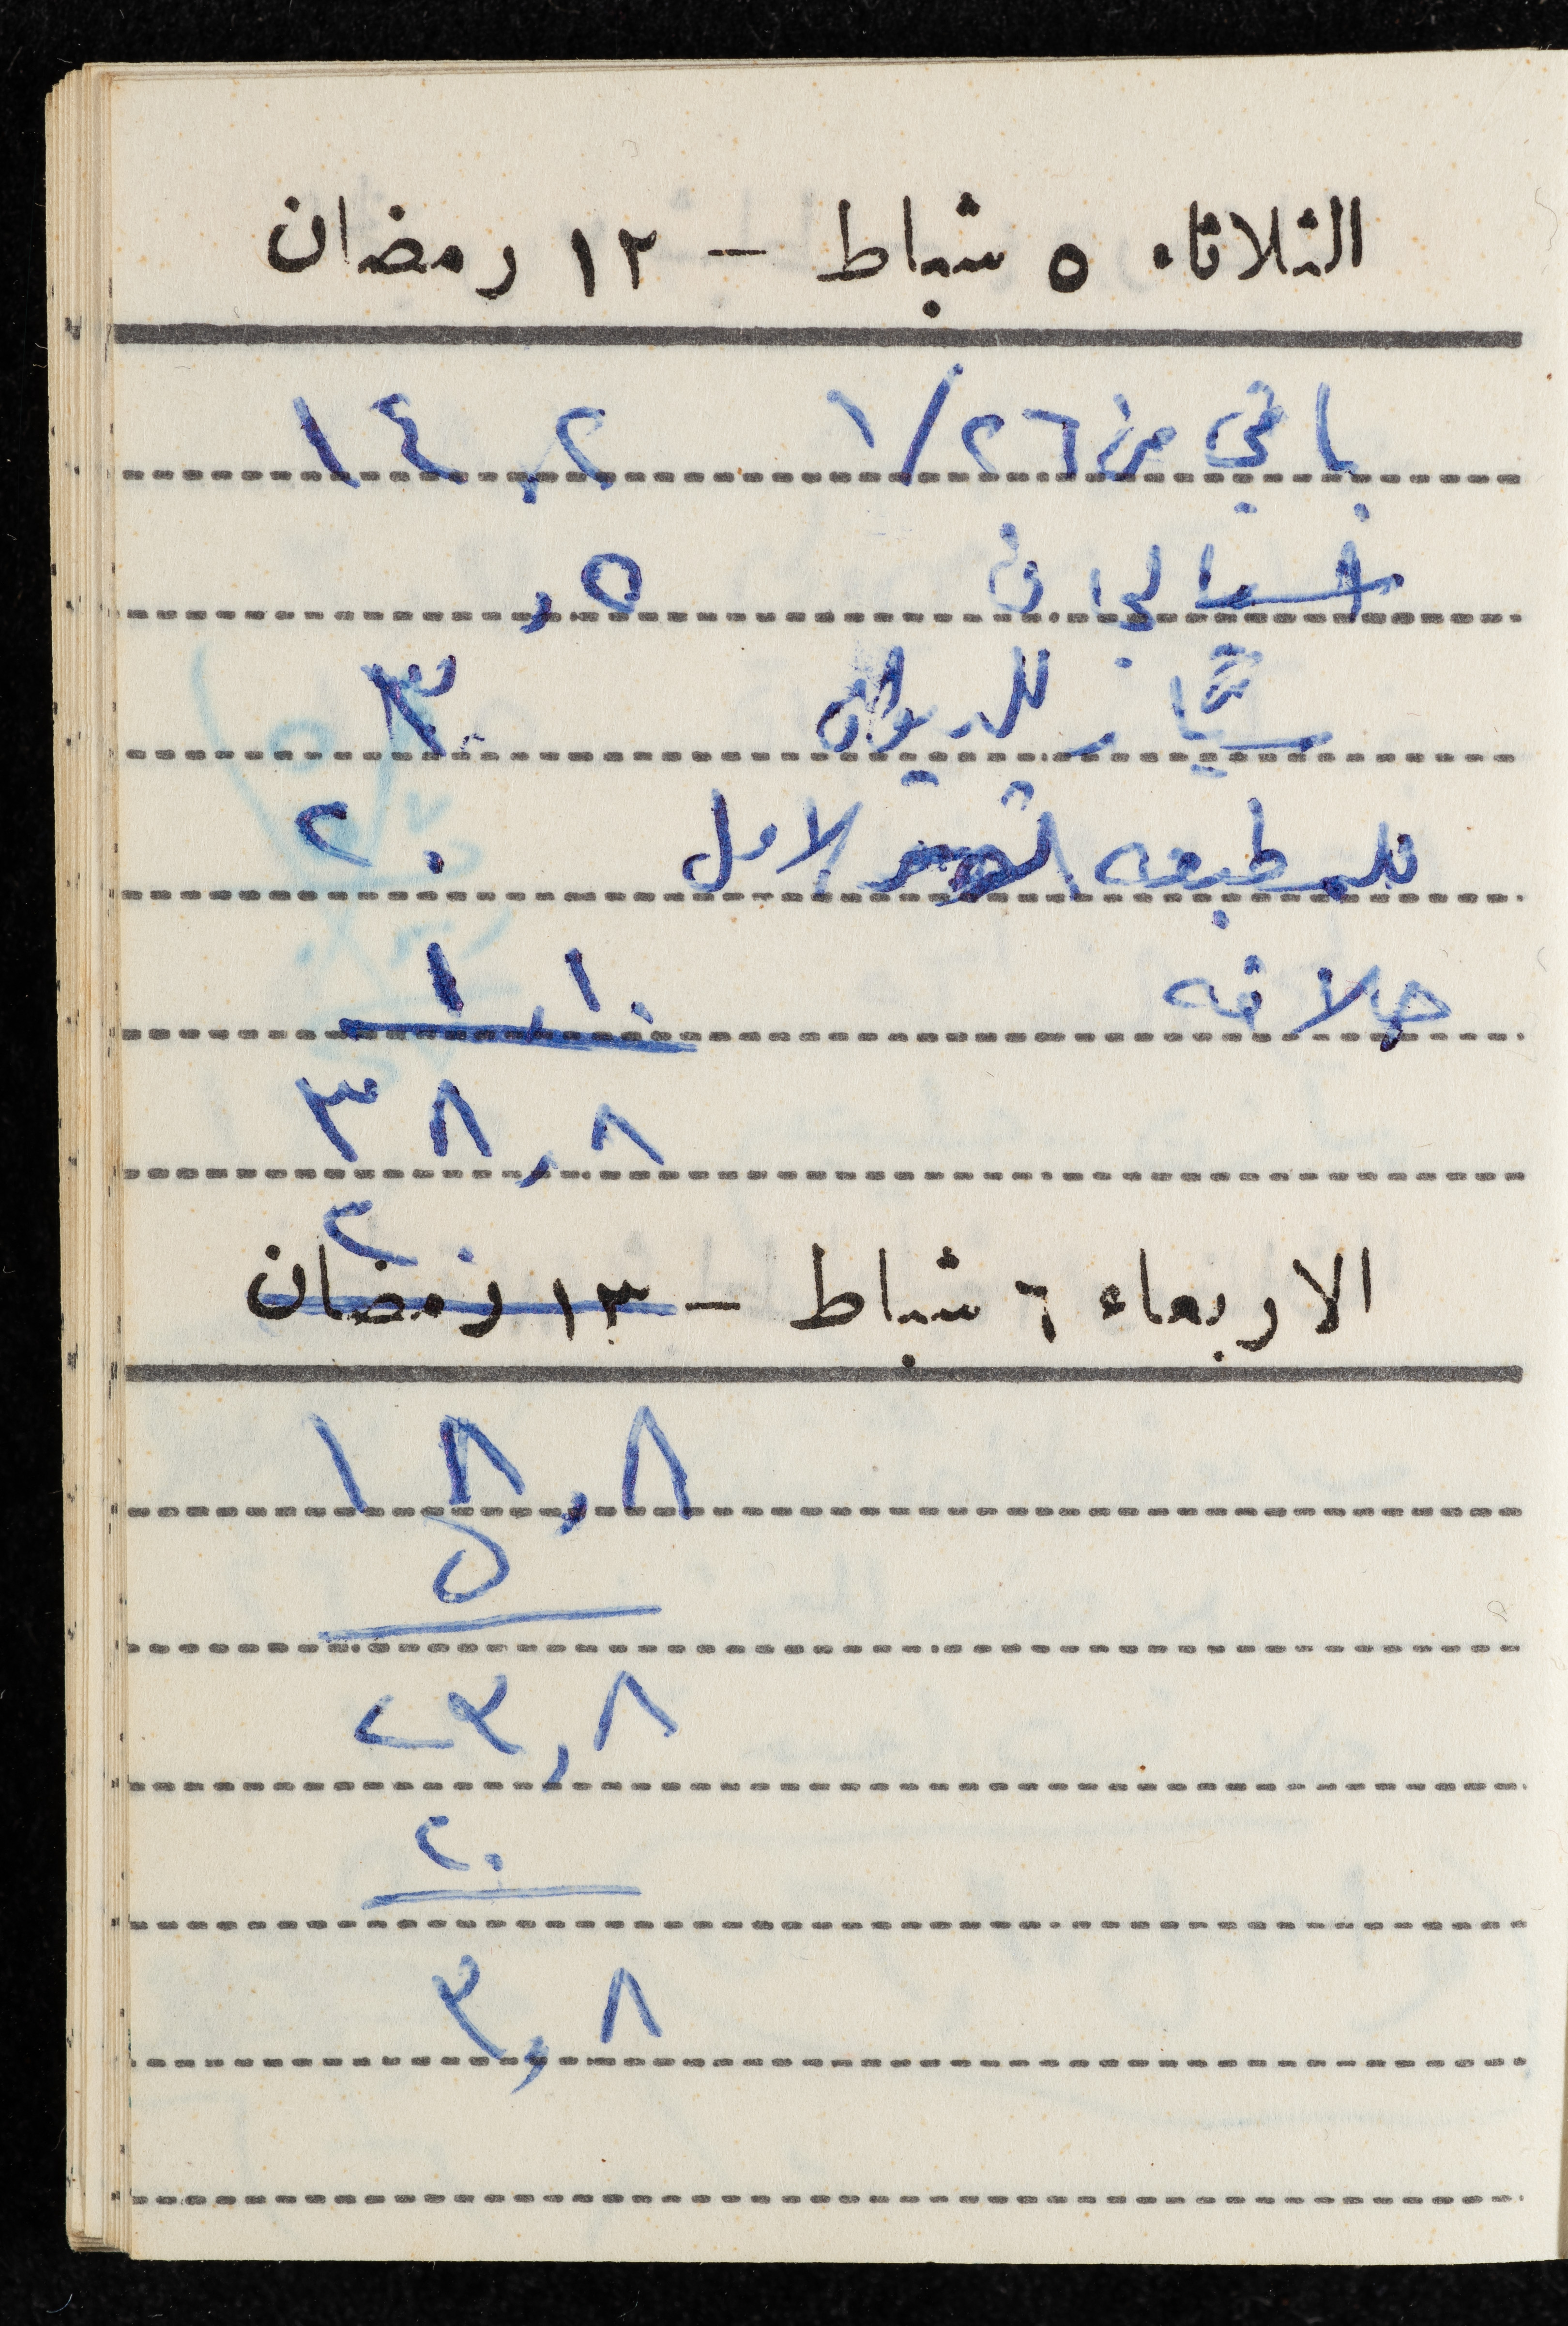 الثلاثاء ٥ شباط - ١٢ رمضان
باقي من ٢٦/١ ١٤,٢
,٥
ستائر للديوان ٣
للمطبعه لامل ٢٠
حلاقه ١,١٠
٣٨,٨
٢٠
الاربعاء ٦ شباط - ١٣ رمضان
١٨,٨
٥
٢٣,٨
٢٠
٣,٨